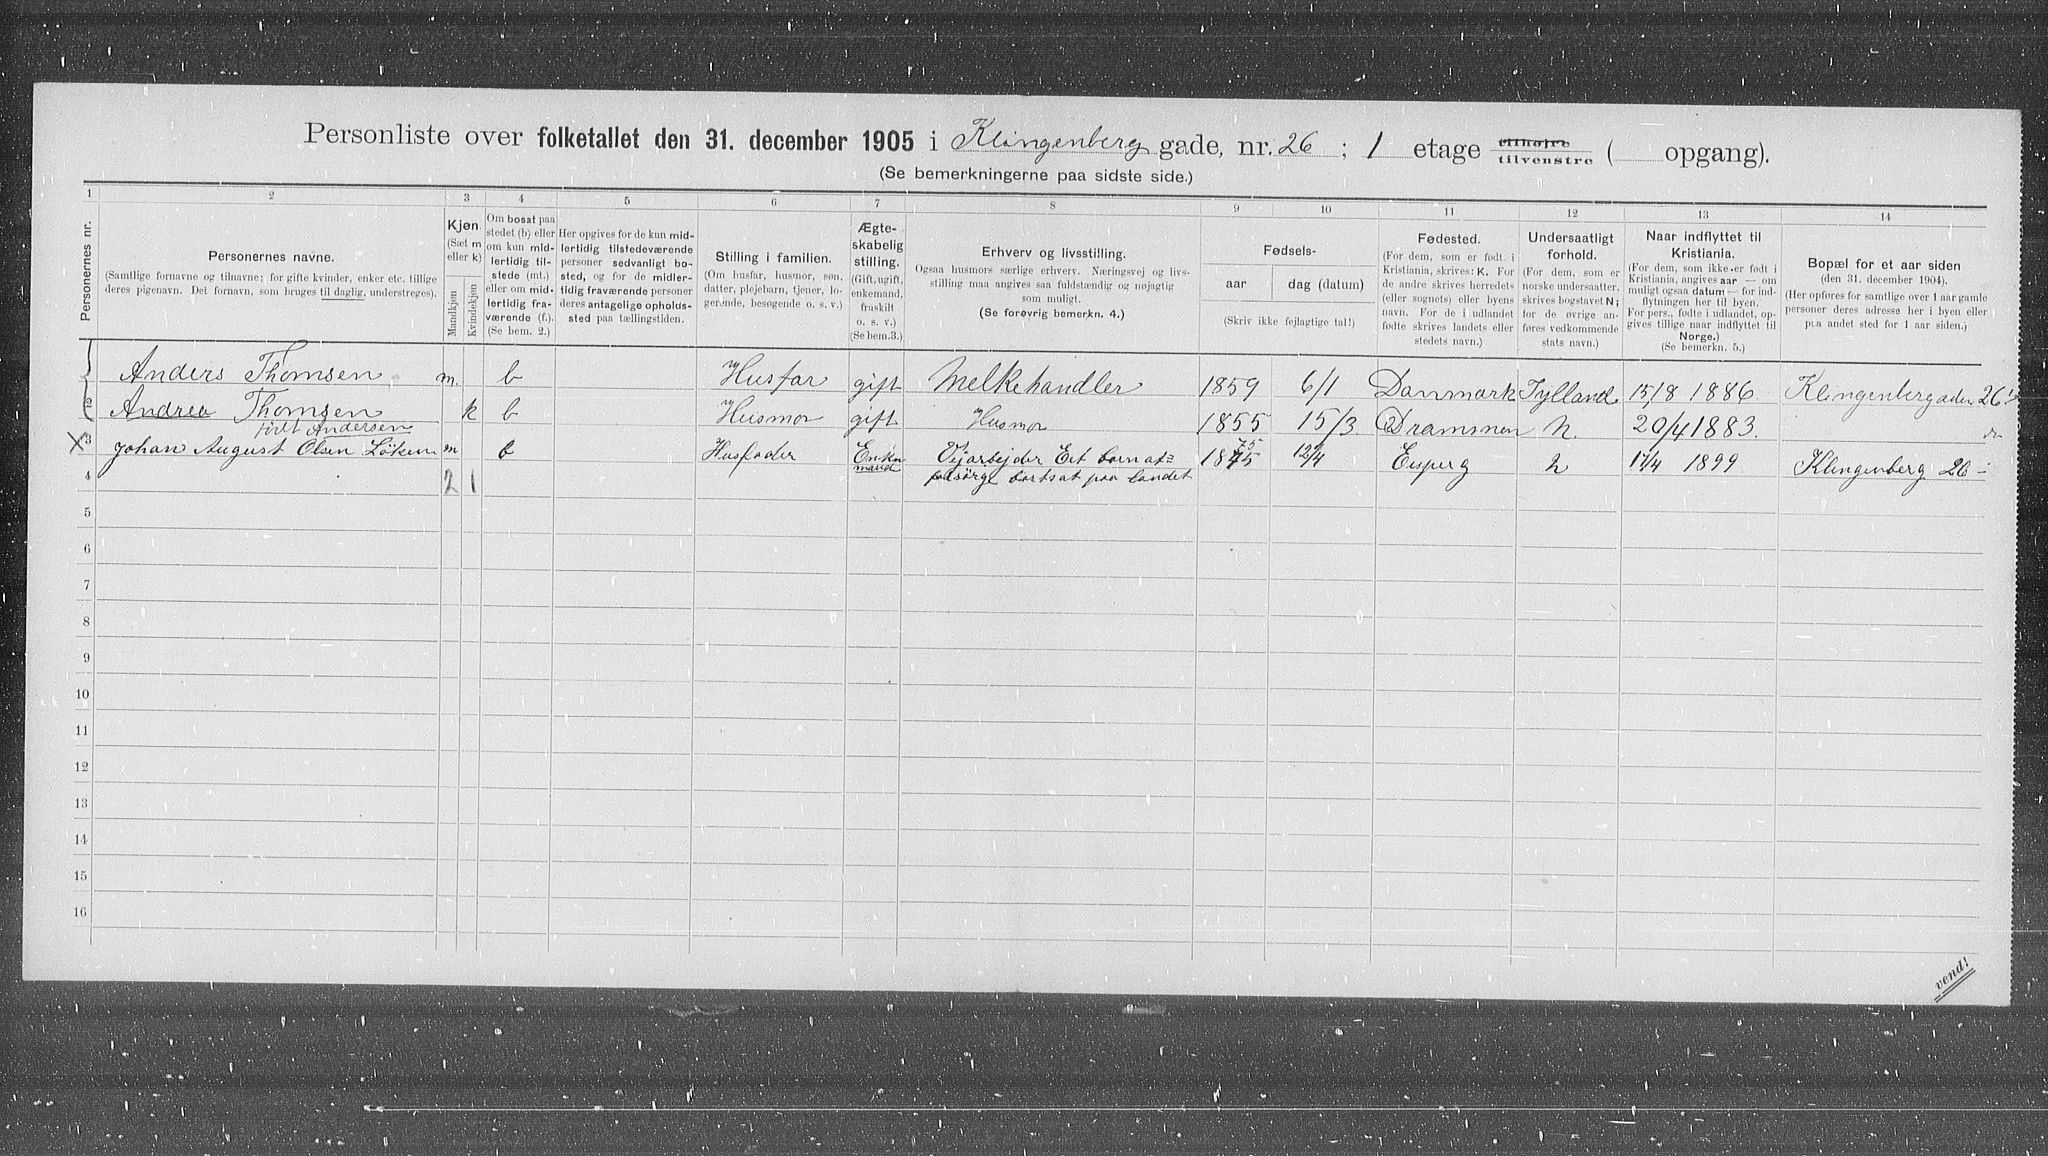 Personliste over folketallet den 31. december 1905 i Klingenberg gade, nr. 26 ; 1 etage tilhøjre tilvenstre ( opgang).
(Se bemerkningerne paa sidste side.)
1 2 3 4 5 6 7 8 9 10 11 12 13 14
Personernes nr.
Personernes navne.
(Samtlige fornavne og tilnavne; for gifte kvinder, enker etc. tillige
deres pigenavn. Det fornavn, som bruges til daglig, understreges).
Kjøn.
(Sæt m
eller k)
Mandkjøn
Kvindekjøn
Om bosat paa
stedet (b) eller
om kun mid-
lertidig til-
stede (mt.)
eller om mid-
lertidig fra-
værende (f.).
(Se bem. 2.)
Her opgives for de kun mid-
lertidig tilstedeværende
personer sedvanligt bo-
sted, og for de midler-
tidig fraværende personer
deres antagelige opholds-
sted paa tællingstiden.
Stilling i familien.
(Om husfar, husmor, søn,
datter, plejebarn, tjener, lo-
gerende, besøgende o. s. v.)
Ægte-
skabelig
stilling.
(Gift, ugift,
enkemand,
fraskilt
o. s. v.)
(Se bem.3.)
Erhverv og livsstilling.
Ogsaa husmors særlige erhverv. Næringsvej og livs-
stilling maa angives saa fuldstændig og nøjagtig
som muligt.
(Se forøvrig bemerkn. 4.)
Fødsels-
aar
dag (datum)
(Skriv ikke fejlagtige tal!)
Fødested.
(For dem, som er født i
Kristiania, skrives: K. For
de andre skrives herredets
(eller sognets) eller byens
navn. For de i udlandet
fødte skrives landets eller
stedets navn.)
Undersaatligt
forhold.
(For dem, som er
norske undersaatter,
skrives bogstavet N;
for de øvrige an-
føres vedkommende
stats navn.)
Naar indflyttet til
Kristiania.
(For dem, som ikke er født i
Kristiania, angives aar — om
muligt ogsaa datum — for ind-
flytningen her til byen.
For pers., fødte i udlandet, op-
gives tillige naar indflyttet til
Norge.)
(Se bemerkn. 5.)
Bopæl for et aar siden
(den 31. december 1904).
(Her opføres for samtlige over 1 aar gamle
personer deres adresse her i byen eller
paa andet sted for 1 aar siden.)
Anders Thomsen m. b Husfar gift Melkehandler 1859 6/1 Danmark Jylland 15/8 1886 Klingenberggaden 26
2 Andrea Thomsen k b Husmor gift Husmor 1855 15/3 Drammen N. 20/4 1883. do
født Andersen
X 3 Johan August Olsen Löken m b Husfader Enke 1875 75 12/4 Eisperg N 14 1899 Klingenberg 26
mand
Vejarbejder Eet barn at
forsörge bortsat paa landet
4 2 1
5
6
7
8
9
10
11
12
13
14
15
16
vend!